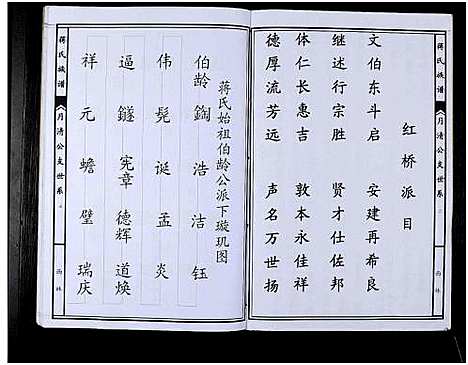 蒋氏族谱
《月清公支世系
西林
红桥派目
文伯东斗启 安建再希良
继述行宗胜 贤才仕佐邦
体仁长惠吉 敦本永佳祥
德厚流芳远 声名万世扬
蒋氏始祖伯龄公派下璇玑图
伯龄 鋾 浩 洁 钰
伟 髡 诞 孟 炎
逼 鐩 宪章 德辉 道焕
祥 元 蟾 璧 瑞庆
蒋氏族谱
《月清公支世系
西林